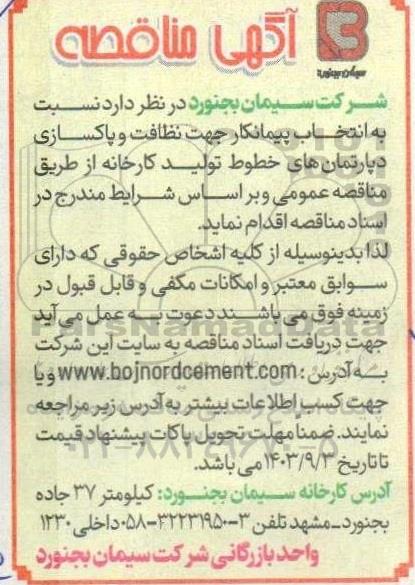 آگهی مناقصه
سیمان بجنورد
شرکت سیمان بجنورد در نظر دارد نسبت
به انتخاب پیمانکار جهت نظافت و پاکسازی
دپارتمان های خطوط تولید کارخانه از طریق
مناقصه عمومی و بر اساس شرایط مندرج در
اسناد مناقصه اقدام نماید.
لذا بدینوسیله از کلیه اشخاص حقوقی که دارای
سوابق معتبر و امکانات مکفی و قابل قبول در
زمینه فوق می باشند دعوت به عمل می آید
جهت دریافت اسناد مناقصه به سایت این شرکت
به آدرس : www.bojnordcement.com و یا
جهت کسب اطلاعات بیشتر به آدرس زیر مراجعه
نمایند. ضمنا مهلت تحویل پاکات پیشنهاد قیمت
تا تاریخ ۱۴۰۳/۹/۳ می باشد.
آدرس کارخانه سیمان بجنورد: کیلومتر ۳۷ جاده
بجنورد ـ مشهد تلفن ۳-۳۲۲۳۱۹۵۰-۰۵۸ داخلی ۱۲۳۰
واحد بازرگانی شرکت سیمان بجنورد
ParsNamadData